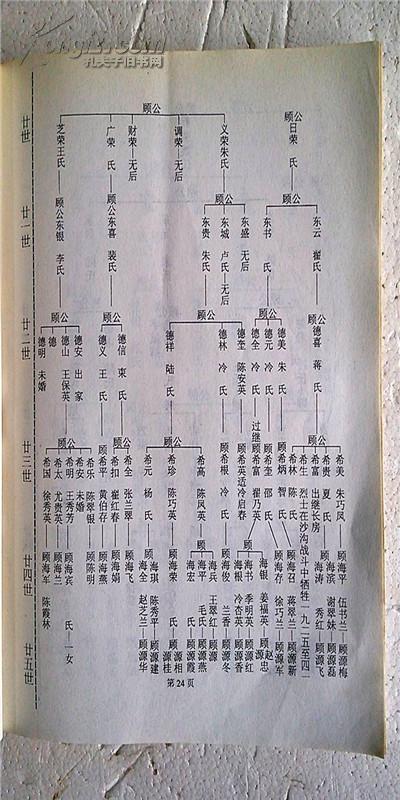 kongfz.com
孔夫子旧书网
廿世
廿一世
廿二世
廿三世
廿四世
廿五世
顾公
芝荣王氏
广荣 氏
财荣 无后
调荣 无后
义荣朱氏
顾公日荣 氏
顾公东银 李氏
顾公东喜 裴氏
顾公
东贵 朱氏
东城 卢氏 无后
东盛 无后
顾公
东书 氏
东云 崔氏
顾公
德明 未婚
德
德山 王保英
德安 出家
顾公
德义 王 氏
德信 束 氏
顾公
德祥 陆 氏
德林 冷 氏
德奎 陈安英
顾公
德全 冷 氏
德元 冷 氏
德美 朱 氏
顾公德喜 蒋 氏
顾公
希国 徐秀英
希太 尤贵英
希明 王秀芳
希安 未婚
希乐 陈翠银
顾希平 黄伯存
顾公
希扣 崔红春
希全 张兰翠
顾公
希元 杨 氏
希珍 陈巧英
希高 陈凤英
顾希根 冷 氏
顾希英适冷启春
过继顾希富 崔乃英
顾希奎 邵 氏
顾希炳 智 氏
顾公
希林 陈 氏
希生 烈士在沙沟战斗中牺牲一九二五至四二
希富 出继长房
希贵 夏 氏
希美 朱巧凤
顾海军 陈霞林
顾海兰
顾海宾 氏 一女
顾陈明
顾海燕
顾海娟
顾海飞
海全 赵芝兰 顾源华
海琪 陈秀平 顾源建
顾海荣 氏 顾源相
源桂
顾
海宏
海平 毛氏 顾源燕
源霞
海兵 王翠红 顾源
顾海俊 兰香 顾源冬
顾
海根 冷杏英 顾源香
海书 季明英 顾源红
海银 姜福英 顾赵忠
源
顾海存 徐巧兰 顾源军
顾海召 蒋翠兰 顾源新
顾海涛 秀红 顾源飞
顾海滨 谢翠妹 顾源磊
顾海平 伍书兰 顾源梅
第24页